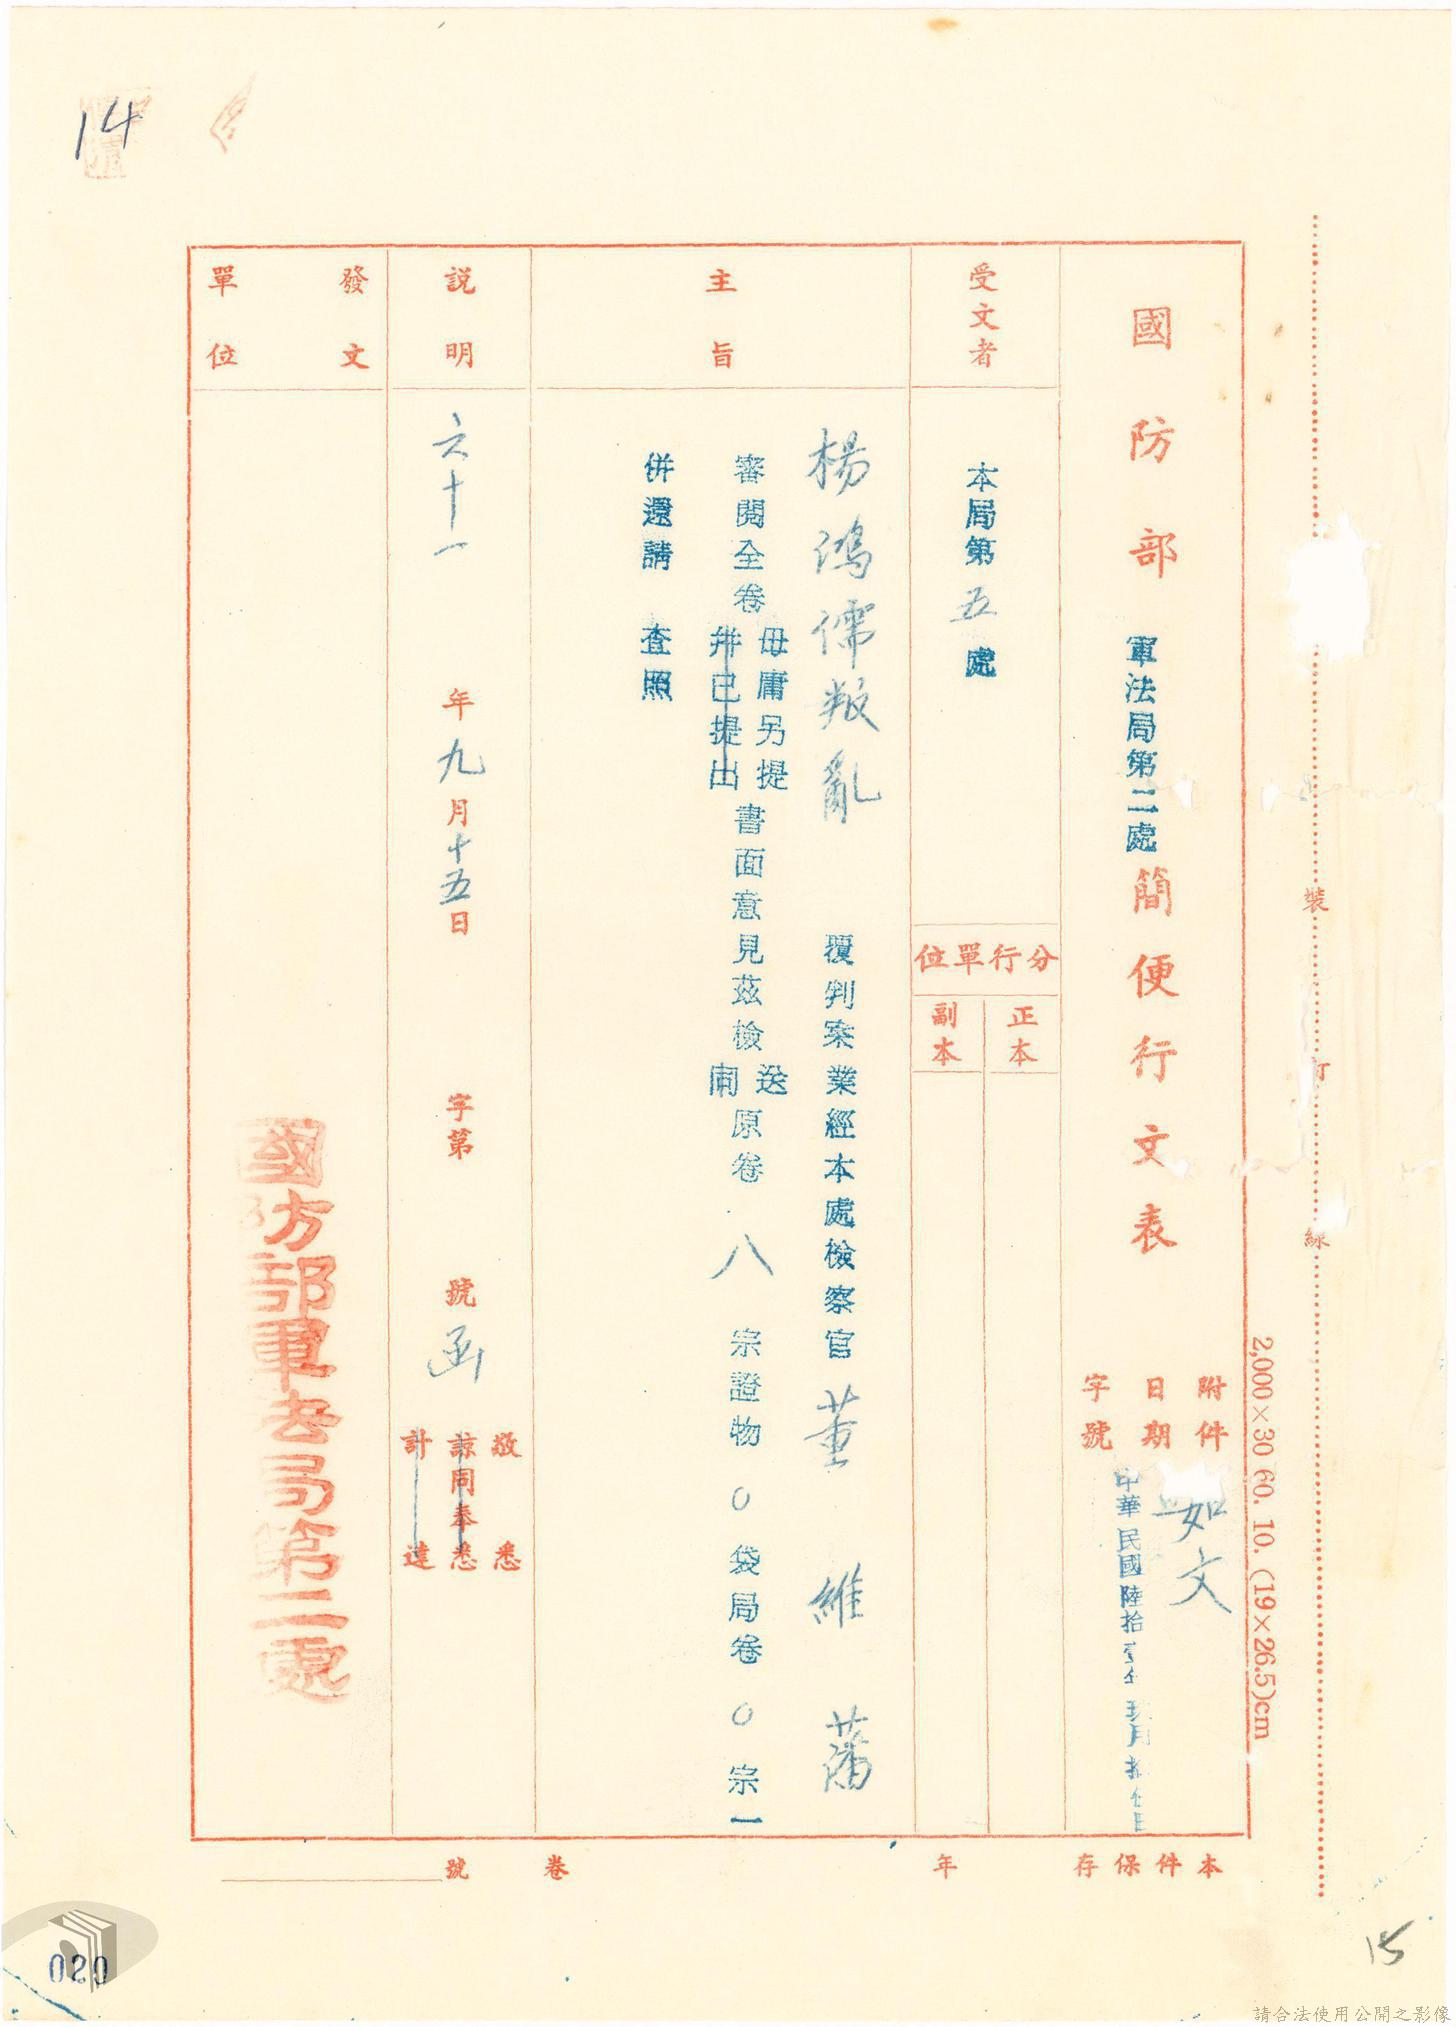 14
裝
訂
線
2,000×30 60. 10. (19×26.5)cm
國防部軍法局第二處簡便行文表
附件
如文
日期
中華民國陸拾壹年玖月拾 日
字號
受文者
本局第五處
分行單位
正本
副本
主旨
楊鴻儒叛亂 覆判案業經本處檢察官董維藩
審閱全卷
毋庸另提
并已提出
書面意見茲檢
送
原卷 八 宗證物 0 袋局卷 0 宗一
併還請 查照
說明
六十一年九月十五日 字第 號函
敬悉
諒同奉悉
計達
發文單位
國防部軍法局第二處
本件保存 年
卷
號
15
020
請合法使用公開之影像